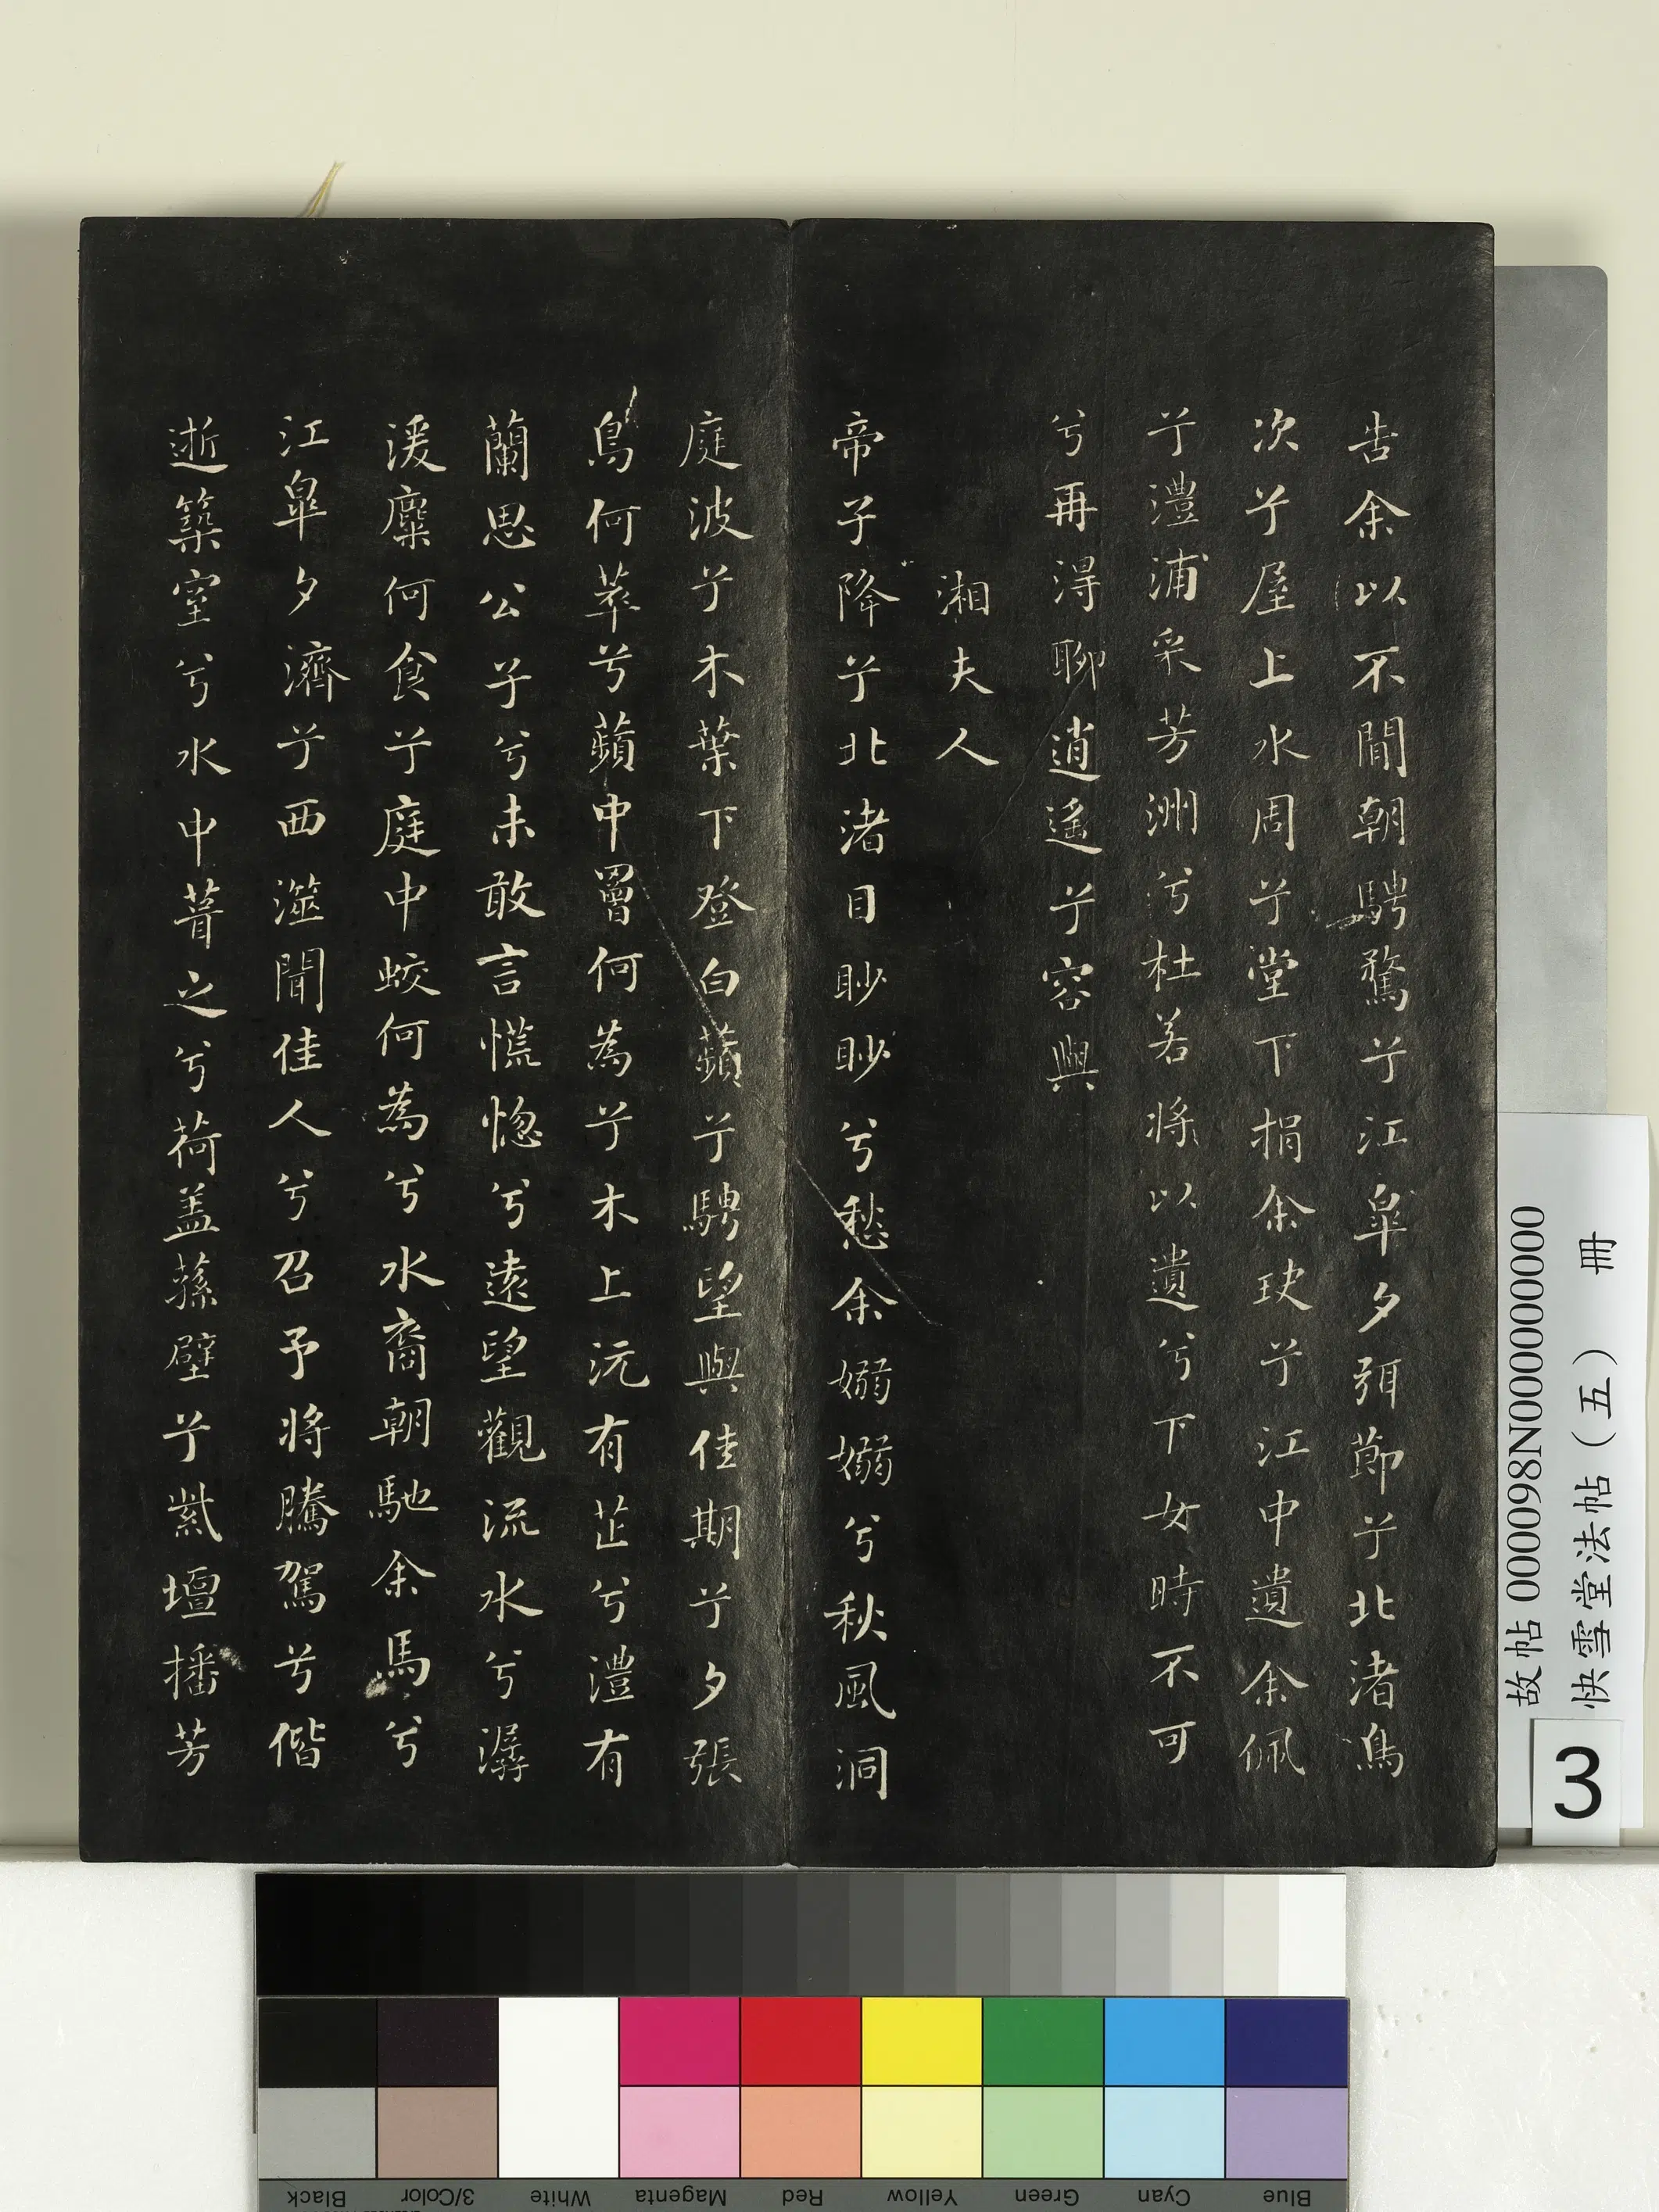 告余以不閒朝騁騖兮江皐夕弭節兮北渚鳥
次兮屋上水周兮堂下捐余玦兮江中遺余佩
兮澧浦采芳洲兮杜若将以遺兮下女時不可
兮再得聊逍遥兮容與
湘夫人
帝子降兮北渚目眇眇兮愁余嫋嫋兮秋風洞
庭波兮木葉下登白蘋兮騁望與佳期兮夕張
鳥何萃兮蘋中罾何為兮木上沅有芷兮澧有
蘭思公子兮未敢言慌惚兮遠望觀流水兮潺
湲麋何食兮庭中蛟何為兮水裔朝馳余馬兮
江皐夕濟兮西澨聞佳人兮召予将騰駕兮偕
逝築室兮水中葺之兮荷盖蓀壁兮紫壇播芳
故帖 000098N000000000
快雪堂法帖（五） 冊
3
Black 3/Color White Magenta Red Yellow Green Cyan Blue